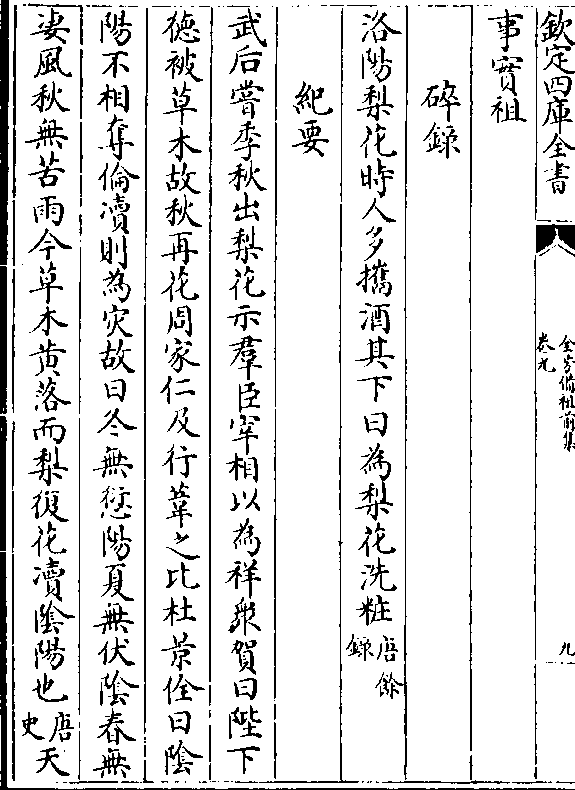 欽定四庫全書
全芳備祖前集
卷九
九
事實祖
碎錄
洛陽梨花時人多擕酒其下曰為梨花洗粧唐餘錄
紀要
武后嘗季秋出梨花示羣臣宰相以為祥衆賀曰陛下
徳被草木故秋再花周家仁及行葦之比杜景佺曰隂
陽不相奪倫凟則為灾故曰冬無愆陽夏無伏隂春無
凄風秋無苦雨今草木黄落而梨復花凟隂陽也唐史天